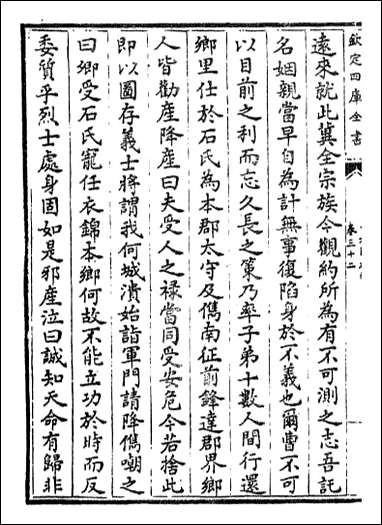 欽定四庫全書
卷三十二
遠來就此冀全宗族今觀約所為有不可測之志吾託
名姻親當早自為計無事復陷身於不義也爾曹不可
以目前之利而忘久長之策乃率子弟十數人間行還
鄉里仕於石氏為本郡太守及儁南征前鋒達郡界鄉
人皆勸産降産曰夫受人之祿當同受安危今若捨此
即以圖存義士將謂我何城潰始詣軍門請降儁嘲之
曰卿受石氏寵任衣錦本鄉何故不能立功於時而反
委質乎烈士處身固如是邪産泣曰誠知天命有歸非